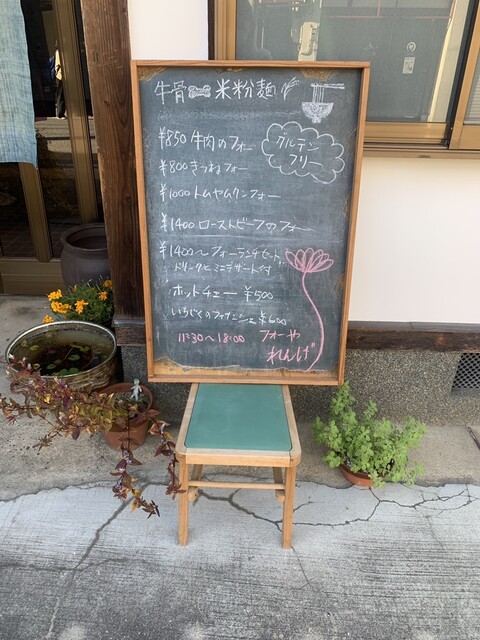 牛骨 米粉麺
グルテン
フリー
¥850 牛肉のフォー
¥800 きつねフォー
¥1000 トムヤムクンフォー
¥1400 ローストビーフのフォー
¥1400〜フォーランチセット
ドリンクとミニデザート付
ホットチェー ¥500
いちじくの ¥600
11:30〜18:00 フォーや
れんげ